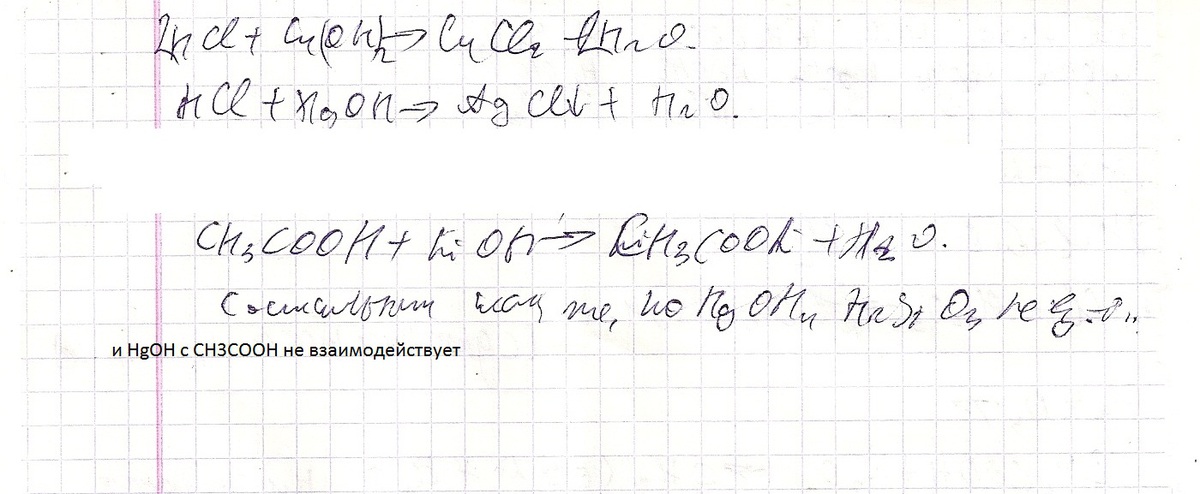 2HCl + Cu(OH)2 → CuCl2 + 2H2O.
HCl + HgOH → AgCl↓ + H2O.
CH3COOH + LiOH → LiH3COOH + H2O.
С остальными так же, но HgOH и H2SiO3 не
и HgOH с CH3COOH не взаимодействует